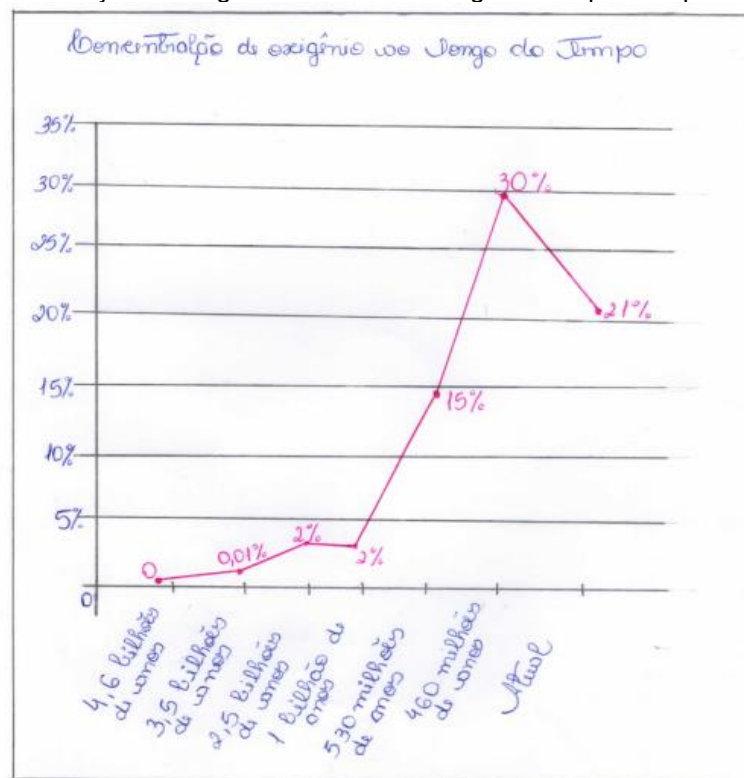 Concentração de oxigênio ao longo do tempo
35%
30%
25%
20%
15%
10%
5%
0
0
0,01%
2%
2%
15%
30%
21%
4,6 bilhões
de anos
3,5 bilhões
de anos
2,5 bilhões
de anos
1 bilhão de
anos
530 milhões
de anos
460 milhões
de anos
Atual